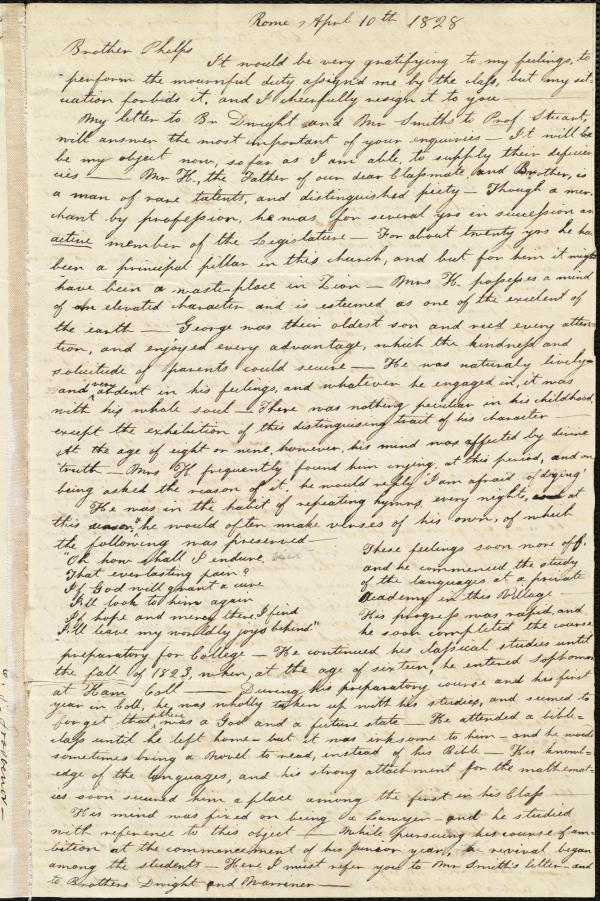 Rome, April 10th 1828
Brother Phelps
It would be very gratifying to my feelings, to
perform the mournful duty assigned me by the class, but my sit-
uation forbids it, and I cheerfully resign it to you —
My letter to Br Dwight and Mr Smiths to Prof Stuart,
will answer the most important of your enquiries — It will
be my object now, so far as I am able, to supply their deficien
cies — Mr H. the Father of our dear Classmate and Brother, is
a man of rare talents, and distinguished piety — Though a mer-
chant by profession, he was for several yrs in succession an
active member of the Legislature — For about twenty yrs he has
been a principal pillar in this church, and but for him it might
have been a waste-place in Zion — Mrs H. possesses a mind
of an elevated character and is esteemed as one of the excelent of
the earth — George was their oldest son and recd every atten-
tion, and enjoyed every advantage, which the kindness and
solicitude of parents could secure — He was naturaly lively
and very ardent in his feelings, and whatever he engaged in, it was
with his whole soul — There was nothing peculiar in his childhood,
except the exhibition of this distinguising trait of his character
At the age of eight or nine, however, his mind was affected by divine
truth — Mrs H frequently found him crying, at this period, and on
being asked the reason of it, he would reply 'I am afraid of dying'
He was in the habit of repeating hymns every night, at
this season, he would often make verses of his own, of which
the following was preserved —
"Oh how shall I endure
That everlasting pain?
If God will grant a cure
I'll look to him again
If hope and mercy there I find
I'll leave my worldly joys behind"
These feelings soon wore off,
and he commenced the study
of the languages at a private
Academy in this Village —
His progress was rapid, and
he soon completed the course
preparatory for College — He continued his classical studies until
the fall of 1823, when, at the age of sixteen, he entered Sophomore
at Ham Coll — During his preparatory course and his first
year in Coll, he was wholly taken up with his studies, and seemed to
forget that there was a God and a future state — He attended a bible-
class until he left home — but it was irksome to him — and he would
sometimes bring a Novell to read, instead of his Bible — His knowl-
edge of the languages, and his strong attachment for the mathemat-
ics soon secured him a place among the first in his Class —
His mind was fixed on being a Lawyer — and he studied
with reference to this object — While pursuing his course of am-
bition at the commencement of his Junior year, a revival began
among the students — Here I must refer you to Mr Smith's letter — and
to Brothers Dwight and Warriner —